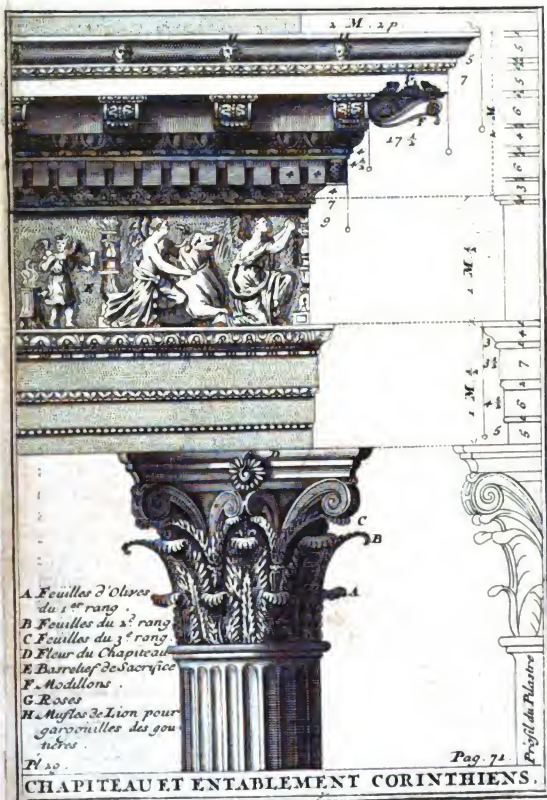 2 M. 2 p
H
5
7
G
F
17 ½
M
5
4
6
4
6
4
3
4
7
9
E
M ½
3
7
4
6
5
M ½
D
C
B
A
A Feüilles d'Olives
du 1er rang.
B Feuilles du 2d rang
C Feuilles du 3e rang.
D Fleur du Chapiteau
E Basrelief de Sacrifice
F Modillons.
G Roses
H Mufles de Lion pour
gargouilles des gou
tieres.
Profil du Pilastre
Pl 29.
Pag. 71
CHAPITEAU ET ENTABLEMENT CORINTHIENS.